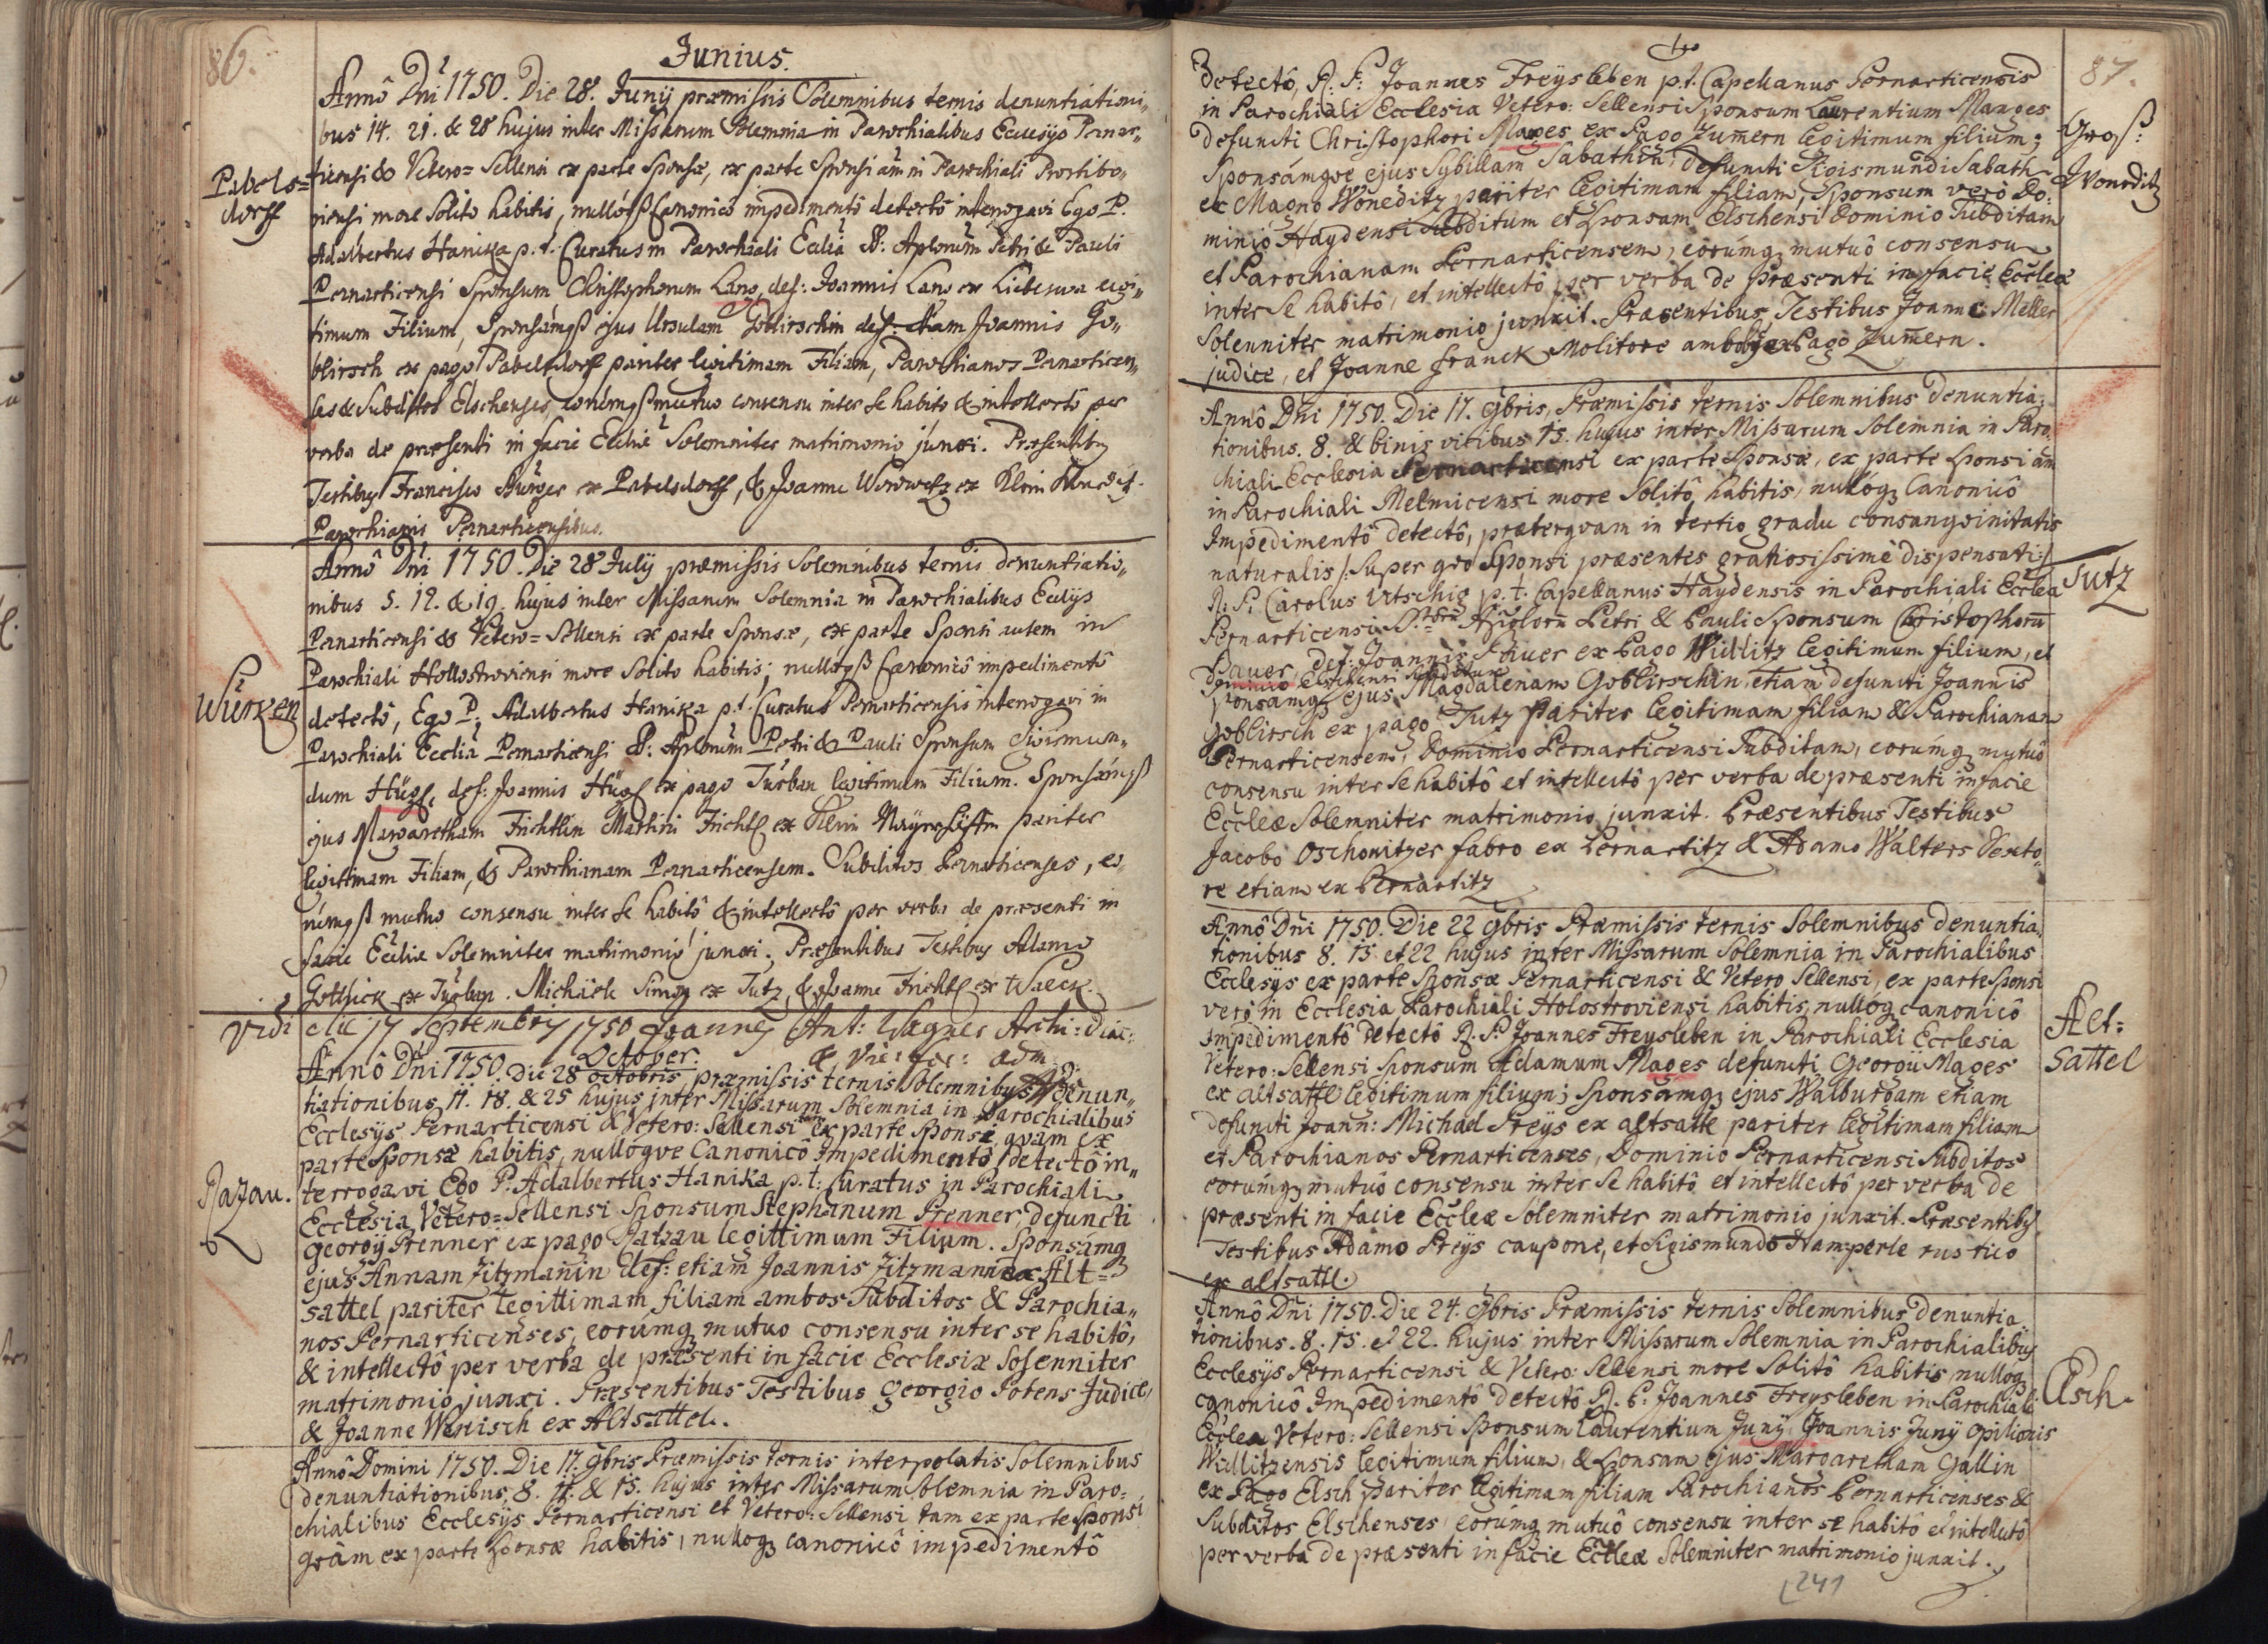 86.
Junius.
Annô Dni 1750. Die 28. Junÿ præmissis Solemnibus ternis denuntiationi„
bus 14. 21. & 28 hujus inter Missarum Solemnia in Parochialibus Ecclesÿs Pernar„
Pabels=
dorff
ticensi & Vetero=Sellensi ex parte Sponsæ, ex parte Sponsi autem in Parochiali
more Solito habitis, nullóqß Canonicô impedimentô detectô interrogavi Ego P.
Adalbertus Hanika p. t. Curatus in Parochiali Ecclia SS: Aplorum Petri & Pauli
Pernarticensi Sponsum Christophorum Lang, def: Joannis Lang ex legi„
timum Filium, Sponsámqß ejus Ursulam Goblirschin def: etiam Joannis Go„
blirsch ex pago Pabelsdorff pariter legitimam Filiam, Parochianos Pernarticen„
ses & Subditos Elschenses, eorúmqß mutuo consensu inter se habito & intellectô per
verba de præsenti in facie Eccliæ Solemniter matrimonio junxi. Præsentibus
Testibus Francisco ex Pabelsdorff, & Joanne ex Klein
Parochianis Pernarticensibus.
Annô Dni 1750. Die 28 Julÿ præmissis Solemnibus ternis denuntiatio„
nibus 5. 12. & 19. hujus inter Missarum Solemnia in Parochialibus Ecclÿs
Pernarticensi & Vetero=Sellensi ex parte Sponsæ, ex parte Sponsi autem in
Parochiali Hollostroviensi more Solito habitis; nullóqß Canonicô impedimentô
Würken
detectô, Ego P: Adalbertus Hanika p.t. Curatus Pernarticensis interrogavi in
Parochiali Ecclia Pernarticensi SS: Aplorum Petri & Pauli Sponsum Sigismun„
dum Hügl, def: Joannis Hügl ex pago Türban legitimum Filium. Sponsámqß
ejus Margaretham Frichtlin Martini Frichtl ex pariter
legitimam Filiam, & Parochianam Pernarticensem. Subditos Pernarticenses, eo„
rúmqß mutuo consensu inter se habitô & intellectô per verba de præsenti in
facie Eccliæ Solemniter matrimonio junxi. Præsentibus Testibus Adamo
ex Türban. Michäele Simon ex Tutz, & Joanne Frichtl ex Waeck.
Vidi die 17 Septembris 1750 Joannes Ant: Wagner Archi: Diac:
& Vic: for: adm
October.
Annô Dni 1750. Die 28 octobris præmissis ternis Solemnibus denun„
tiationibus 11. 18. & 25 hujus inter Missarum Solemnia in Parochialibus
Ecclesÿs Pernarticensi & Vetero: Sellensi ex parte Sponsi, quàm ex
parte Sponsæ habitis, nullóqve Canonicô Impedimentô, detectô in„
Razau.
terrogavi Ego P. Adalbertus Hanika p.t: Curatus in Parochiali
Ecclesia Vetero=Sellensi Sponsum Stephanum Prenner, defuncti
Georgÿ Prenner ex pago Ratzau legittimum Filium. Sponsámq
ejus Annam Zitzmanin def: etiam Joannis Zitzmann ex Alt=
sattel pariter legittimam filiam ambos Subditos & Parochia„
nos Pernarticenses, eorúmq mutuo consensu inter se habitô,
& intellectô per verba de præsenti in facie Ecclesiæ Solenniter
matrimonio junxi. Præsentibus Testibus Georgio Potens Judice,
& Joanne Wenisch ex Altsattel.
Annô Domini 1750. Die 17. 9bris Præmissis ternis interpolatis Solemnibus
denuntiationibus, 8. 11. & 15. hujus inter Missarum Solemnia in Paro:
chialibus Ecclesÿs Pernarticensi et Vetero: Sellensi tam ex parte Sponsi
qvàm ex parte Sponsæ habitis, nullóq canonicô impedimentô
87.
detectô, R. P. Joannes Freysleben p.t. Capellanus Pernarticensis
in Parochiali Ecclesia Vetero: Sellensi Sponsum Laurentium Mages
Groß:
Woneditz
defuncti Christophori Mages ex Pago Zum̄ern legitimum filium;
Sponsámqve ejus Sybillam Sabathin, defuncti Sigismundi Sabath
ex Magno Woneditz pariter legitimam filiam, Sponsum verò Do:
miniô Haydensi Subditum et Sponsam Elschensi Dominio Subditam
et Parochianam Pernarticensem, eorúmq mutuô consensu
inter se habitô, et intellectô per verba de præsenti in facie Eccleæ
Solenniter matrimonio junxit. Præsentibus Testibus Joanne Meller
judice, et Joanne Franck Molitore ambobus ex Pago Zum̄ern.
Annô Dni 1750. Die 17. 9bris, Præmissis ternis Solemnibus Denuntia:
tionibus. 8. & binis vicibus 15. hujus inter Missarum Solemnia in Paro:
chiali Ecclesia Pernarticensi ex parte Sponsæ, ex parte Sponsi aūt
in Parochiali Melmicensi more Solitô habitis, nullóq Canonicô
Impedimentô detectô, præterqvam in tertio gradu consangvinitatis
naturalis/: super qvo Sponsi præsentes gratiosissimè dispensati:/
Tutz
R. P. Carolus Urtschig p. t. Capellanus Haydensis in Parochiali Ecclea
Pernarticensi SStorum Aplorū Petri & Pauli Sponsum Christophorū
Pauer, def: Joannis Pauer ex Pago Widlitz legitimum filium, et
Dominio Elschensi Subditum
Sponsámq ejus Magdalenam Goblirschin, etiam defuncti Joannis
Goblirsch ex pago Tutz Pariter legitimam filiam & Parochianam
Pernarticensem, Dominio Pernarticensi Subditam, eorúmq mutuô
consensu inter se habitô et intellectô per verba de præsenti in facie
Eccleæ Solemniter matrimonio junxit. Præsentibus Testibus
Jacobo Oschowitzer fabro ex Pernartitz & Adamo Walters Texto:
re etiam ex Pernartitz
Annô Dni 1750. Die 22 9bris Præmissis ternis Solemnibus denuntia:
tionibus 8. 15 et 22 hujus inter Missarum Solemnia in Parochialibus
Ecclesÿs ex parte Sponsæ Pernarticensi & Vetero Sellensi, ex parte Sponsi
verò in Ecclesia Parochiali Holostroviensi habitis, nullóq canonicô
Alt=
sattel
impedimentô Detectô R. P. Joannes Freysleben in Parochiali Ecclesia
Vetero: Sellensi Sponsum Adamum Mages defuncti Georgÿ Mages
ex altsattl legitimum filium; Sponsámq ejus Walburgam etiam
defuncti Joann: Michael Preÿs ex altsattl pariter legitimam filiam
et Parochianos Pernarticenses, Dominio Pernarticensi Subditos
eorúmq mutuô consensu inter se habitô et intellectô per verba de
præsenti in facie Eccleæ Solemniter matrimonio junxit. Præsentibus
Testibus Adamo Preÿs caupone, et Sigismundo Hamperle rustico
ex altsattl.
Annô Dni 1750. Die 24. 9bris Præmissis ternis Solemnibus denuntia:
tionibus. 8. 15. et 22. hujus inter Missarum Solemnia in Parochialibus
Ecclesÿs Pernarticensi & Vetero: Sellensi more Solitô habitis, nullóq
Elsch.
canonicô Impedimentô detectô R. P. Joannes Freysleben in Parochiali
Ecclea Vetero: Sellensi Sponsum Laurentium Junÿ, Joannis Junÿ opilionis
Widlitzensis legitimum filium, & Sponsam ejus Margaretham Gallin
ex Pago Elsch pariter legitimam filiam Parochianos Pernarticenses &
Subditos Elschenses, eorúmq mutuô consensu inter se habitô et intellectô
per verba de præsenti in facie Eccleæ Solemniter matrimonio junxit.
241